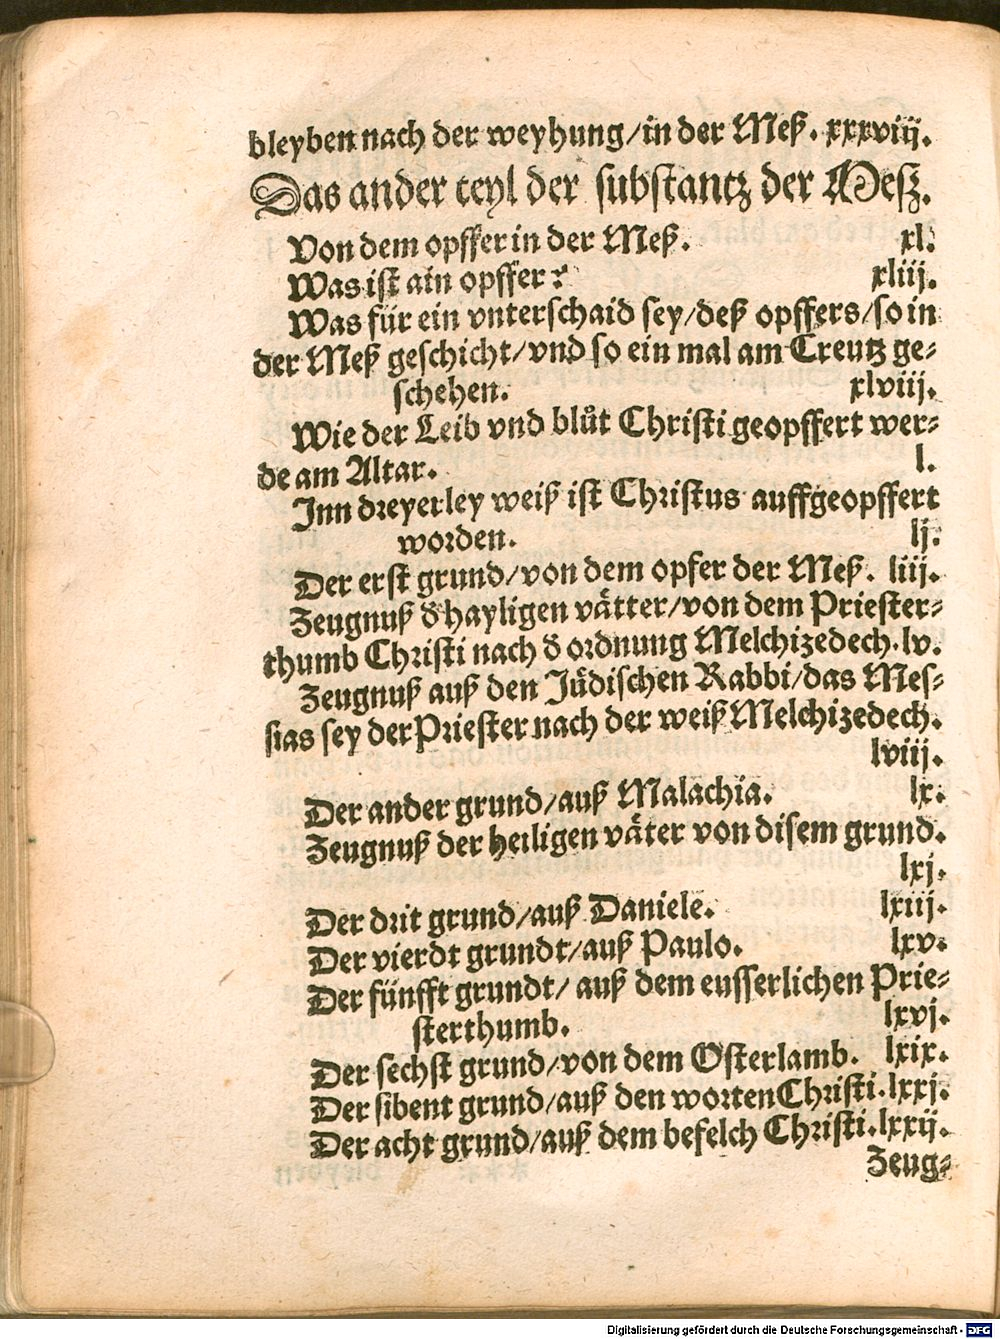 bleyben nach der weyhung/in der Meß. xxxviij.
Das ander teyl der substantz der Mesz.
Von dem opffer in der Meß. xl.
Was ist ain opffer? xliij.
Was für ein vnterschaid sey/deß opffers/so in
der Meß geschicht/vnd so ein mal am Creutz ge-
schehen. xlviij.
Wie der Leib vnd blůt Christi geopffert wer-
de am Altar. l.
Inn dreyerley weiß ist Christus auffgeopffert
worden. lj.
Der erst grund/von dem opfer der Meß. liij.
Zeugnuß d' hayligen vätter/von dem Priester-
thumb Christi nach d' ordnung Melchizedech. lv.
Zeugnuß auß den Jüdischen Rabbi/das Mes-
sias sey der Priester nach der weiß Melchizedech.
lviij.
Der ander grund/auß Malachia. lx.
Zeugnuß der heiligen väter von disem grund.
lxj.
Der drit grund/auß Daniele. lxiij.
Der vierdt grundt/auß Paulo. lxv.
Der fünfft grundt/ auß dem eusserlichen Prie-
sterthumb. lxvj.
Der sechst grund/von dem Osterlamb. lxix.
Der sibent grund/auß den worten Christi. lxxj.
Der acht grund/auß dem befelch Christi. lxxij.
Zeug-
Digitalisierung gefördert durch die Deutsche Forschungsgemeinschaft - DFG